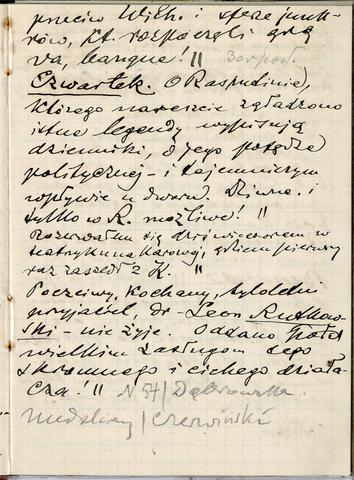 przeciw Wilh. i sferze junk-
rów, kt. rozpoczęli grę
va, banque! || 3 or pol.
Czwartek. O Rasputinie,
którego nareszcie zgładzono
istne legendy wypisują
dzienniki, o jego potędze
politycznej - i tajemniczym
wpływie u dworu. Dziwne i
tylko w R. możliwe! ||
Rozerwałem się dziś wieczorem w
teatrzyku na Karowej, gdziem pierwszy
raz zaszedł z K. ||
Poczciwy, kochany, tyloletni
przyjaciel, dr - Leon Rutkow-
ski - nie żyje. Oddano hołd
wielkim zasługom tego
skromnego i cichego działa-
cza! || N 54/ Dąbrowska
niedzielny / Czerwiński